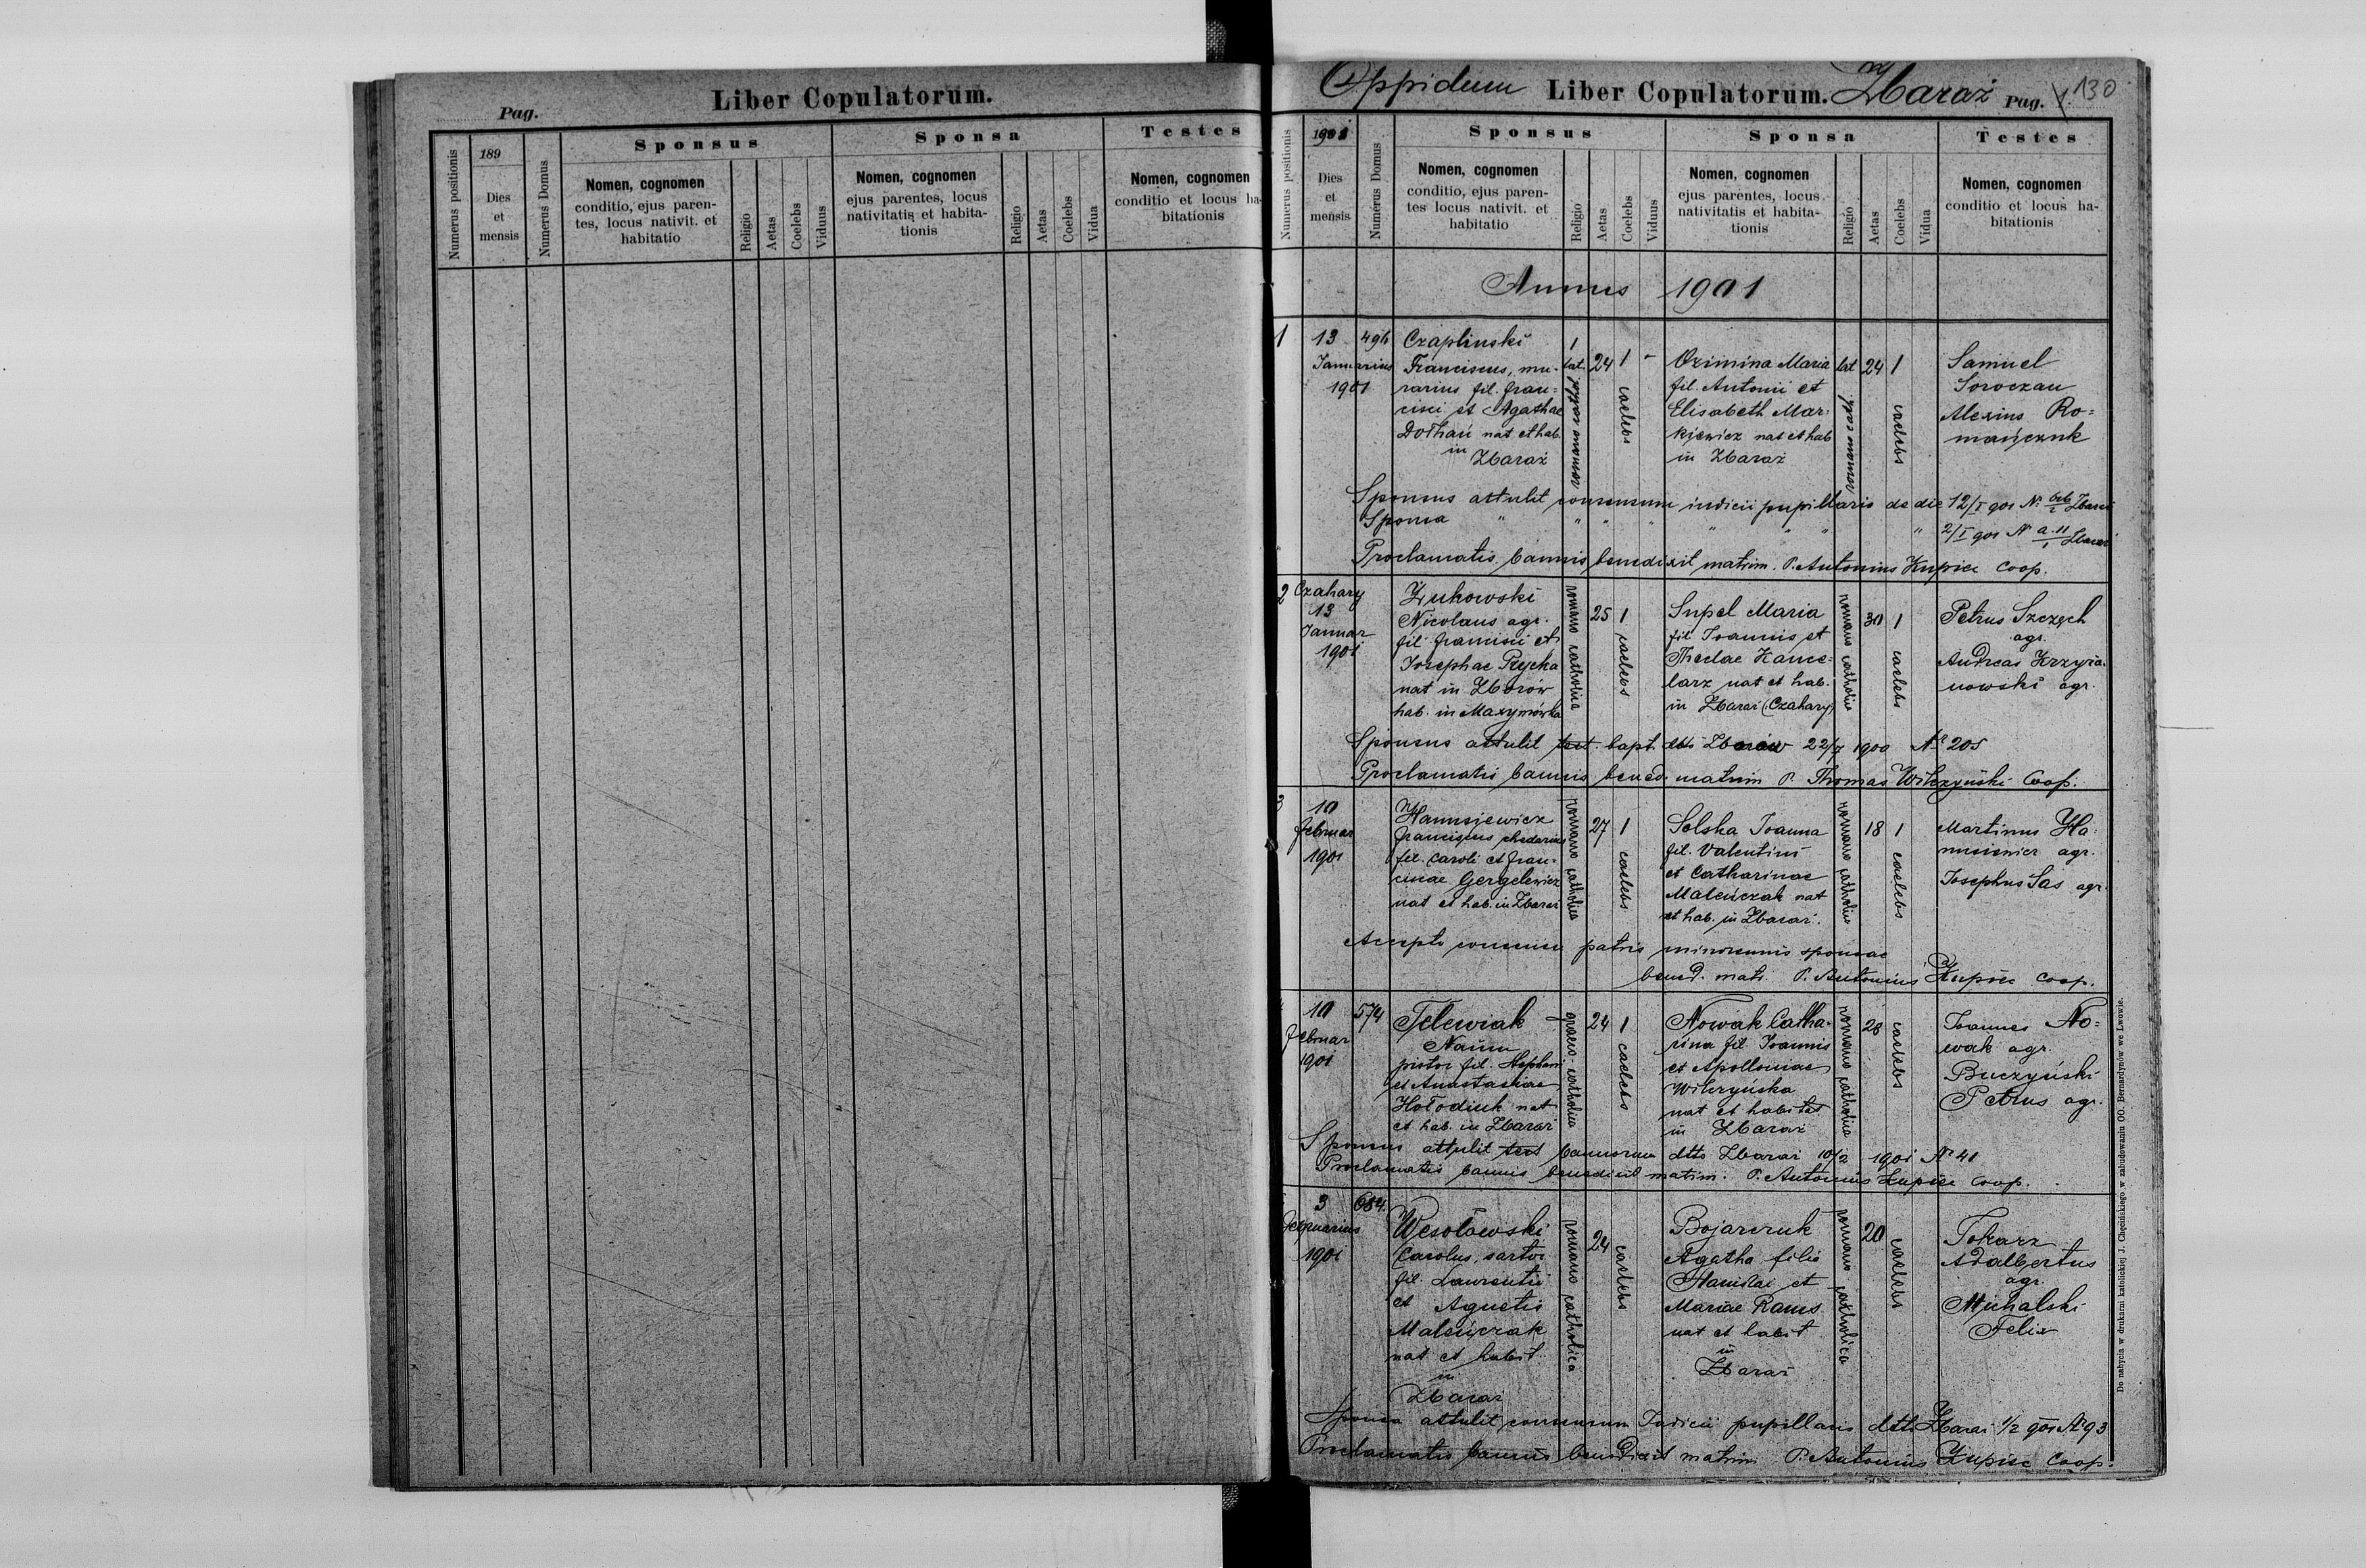 Pag.
Liber Copulatorum.
Numerus positionis
189
Dies
et
mensis
Numerus Domus
Sponsus
Nomen, cognomen
conditio, ejus paren-
tes, locus nativit. et
habitatio
Religio
Aetas
Coelebs
Viduus
Sponsa
Nomen, cognomen
ejus parentes, locus
nativitatis et habita-
tionis
Religio
Aetas
Coelebs
Vidua
Testes
Nomen, cognomen
conditio et locus ha-
bitationis
Oppidum Liber Copulatorum. Zbaraż Pag. 1. 130
Numerus positionis
1901
Dies
et
mensis
Numerus Domus
Sponsus
Nomen, cognomen
conditio, ejus paren-
tes locus nativit. et
habitatio
Religio
Aetas
Coelebs
Viduus
Sponsa
Nomen, cognomen
ejus parentes, locus
nativitatis et habita-
tionis
Religio
Aetas
Coelebs
Vidua
Testes
Nomen, cognomen
conditio et locus ha-
bitationis
Annus 1901
1
13
Januarius
1901
Czaplinski
Franciscus, mu-
rarius fil. Fran=
cisci et Agathae
Dołhań nat et hab.
in
Zbaraż
1
lat.
romano cathol.
24
1
caelebs
Ozimina Maria
fil. Antonii et
Elisabeth Mar-
kiewicz nat et hab
in Zbaraż
lat
romano cath.
24
1
caelebs
Samuel
Soroczan
Alexius Ro=
mańczuk
Sponsus attulit consensum iudicii pupillaris de die 12/I 901 N. Zbaraż
Sponsa " " " " " " " 2/I 901 N Zbaraż
Proclamatis bannis benedixit matrim. P. Antonius Kupiec Coop.
2
Czahary
13
Januar
1901
Żukowski
Nicolaus agr.
fil. Francisci et
Josephae Prycka
nat in Zborów
hab. in Maxymówka
romano catholica
25
1
caelebs
Supel Maria
fil. Joannis et
Theclae Kance=
larz nat et hab.
in Zbaraż (Czahary)
romano catholica
30
1
caelebs
Petrus Szczęch
agr.
Andreas Krzyża-
nowski agr.
Sponsus attulit test. bapt. dtto Zborów 1900 Nr 205
Proclamatis bannis bened. matrim P. Thomas Wilczyński Coop.
3
10
Februar
1901
Hanusiewicz
Franciscus
fil. Caroli et Fran=
ciscae Gergelewicz
nat et hab. in Zbaraż
romano catholica
27
1
caelebs
Solska Joanna
fil. Valentini
et Catharinae
Maleńczak nat
et hab. in Zbaraż.
romano catholica
18
1
caelebs
Martinus Ha-
nusiewicz agr.
Josephus Sas agr.
Accepto consensu patris minorennis sponsae
bened. matr. P. Antonius Kupiec Coop.
10
Februar
1901
574
Telewiak
Naum
pistor fil. Stephani
et Anastasiae
Hołodiuk nat
et hab. in Zbaraż
graeco-catholica
24
1
caelebs
Nowak Catha-
rina fil. Joannis
et Apolloniae
Wilczyńska
nat et habitat
in Zbaraż
romano catholica
28
caelebs
Joannes No=
wak agr.
Buczyński
Petrus agr.
Sponsus attulit test bannorum dtto Zbaraż 10/2 1901 Nr 41
Proclamatis bannis benedixit matrim. P. Antonius Kupiec Coop.
3
Februarius
1901
684.
Wesołowski
Carolus, sartor
fil. Laurentii
et Agnetis
Maleńczak
nat et habit.
in
Zbaraż
romano catholica
24
caelebs
Bojarczuk
Agatha filia
Stanislai et
Mariae Rams
nat et habit
in
Zbaraż
romano catholica
20
caelebs
Tokarz
Adalbertus
agr.
Michalski
Felix
Sponsa attulit consensum Iudicii pupillaris dtto Zbaraż 1/2 901 Nr 93
Proclamatis bannis benedixit matrim P. Antonius Kupiec Coop.
Do nabycia w drukarni katolickiej J. Chęcińskiego w zabudowaniu OO. Bernardynów we Lwowie.